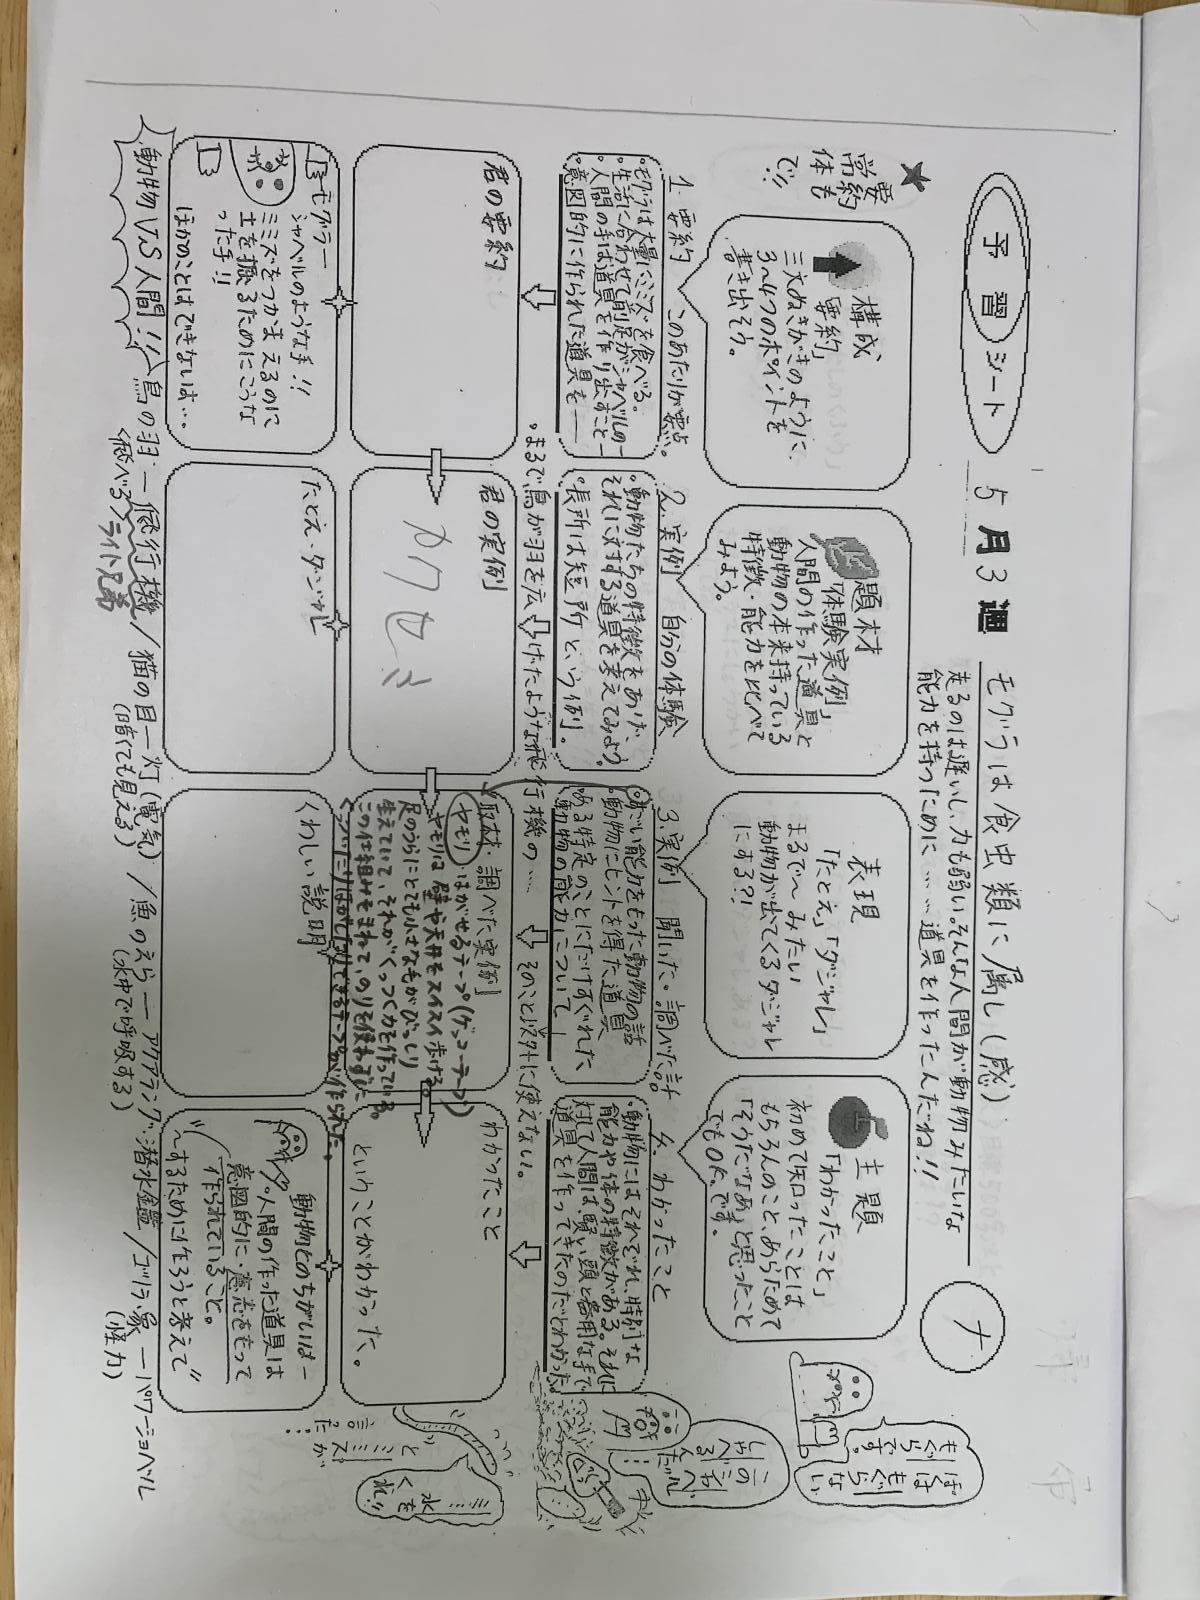 予習シート 5月3週
モグラは食虫類に属し(感)
走るのは遅いし、力も弱い。そんな人間が動物みたいな
能力を持つために……道具を作ったんだね!!
ナ
ぼくは
もぐらない
もぐらです。
★
要約
常体も
で!!
構成
要約」
三文ぬきがきのように、
3〜4つのポイントを
書き出そう。
題材
「体験実例」
人間の作った道具と
動物の本来持っている
特徴・能力を比べて
みよう。
表現
「たとえ」「ダジャレ」
まるで〜みたい
動物が出てくるダジャレ
にする?!
主題
「わかったこと」
初めて知ったことは
もちろんのこと、あらためて
「そうだなぁ」と思ったこと
でもOK。です。
1. 要約 このあたりが要点。
・モグラは大量にミミズを食べる。
・生活に合わせて前足がシャベルの—
・人間の手は道具を作り出すこと—
・意図的に作られた道具を——
2. 実例 自分の体験
・動物たちの特徴をあげ、
それに対する道具を考えてみよう。
・長所は短所という例。
3. 実例 聞いた。調べた話
・すごい能力をもった動物の話
・動物にヒントを得た道具
・ある特定のことにだけすぐれた
動物の能力について—
4. わかったこと
・動物にはそれぞれ、特別な
能力や体の特徴がある。それに
対して人間は、賢い頭と器用な手で
道具を作ってきたのだとわかった。
・まるで鳥が羽を広げたような飛行機の……
そのこと以外に使えない。
君の要約
君の実例
カワウソ
取材・調べた実例
ヤモリ・はがせるテープ(ゲッコーテープ)
ヤモリは壁や天井をスイスイ歩ける。
足のうらにとても小さな毛がびっしり
生えていて、それがくっつく力を作っている。
この仕組みをまねて、のりを使わずに
くっついたりはがしたりできるテープが作られた。
わかったこと
ということがわかった。
水
をくれ!!
とミミズが
言った…
モグラー
シャベルのような手!!
ミミズをつかまえるのに
土を掘るためにこうな
った手!!
ほかのことはできないは…
たとえ・ダジャレ
くわしい説明
動物とのちがいは—
人間の作った道具は
意図的に・意志をもって
作られていること。
〜するために作ろうと考えて
動物VS人間!! 鳥の羽—飛行機/猫の目—灯(電気)/魚のえら—アクアラング・潜水艦/ゴリラ・象—パワーショベル
<飛べる>ライト兄弟 (暗くても見える) (水中で呼吸する) (怪力)